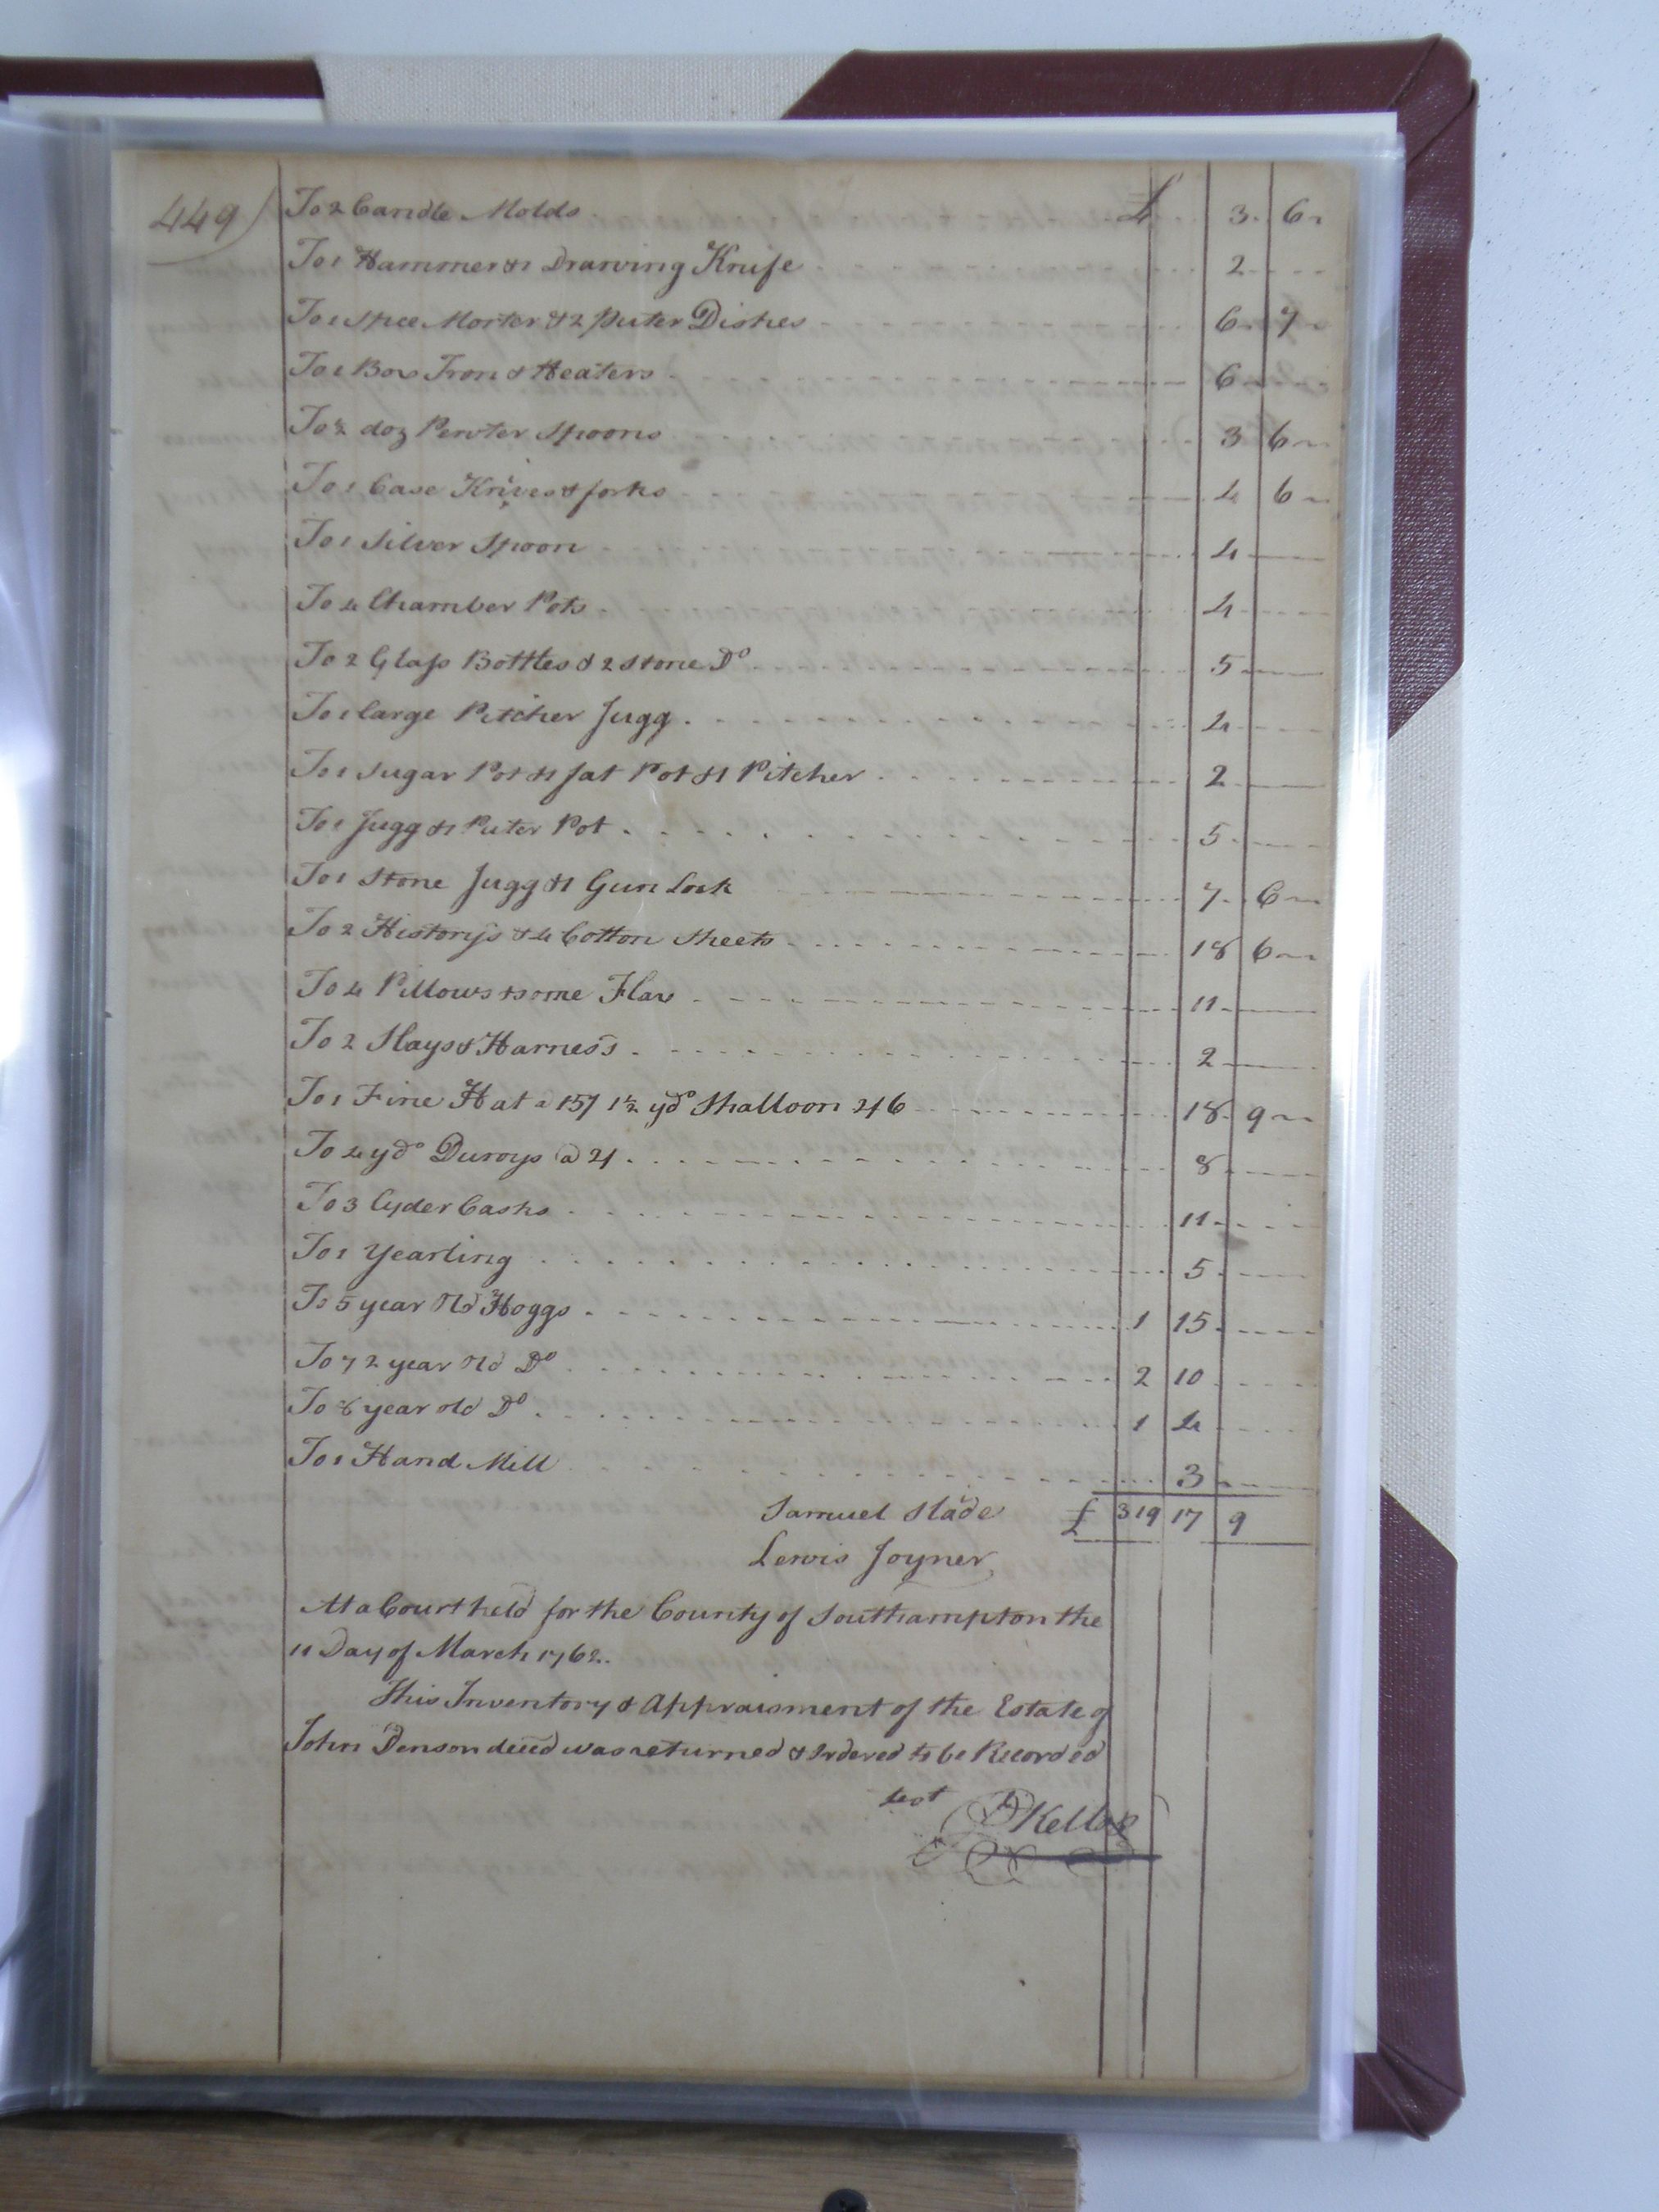 449) To 2 Candle Molds £ 3. 6
To 1 Hammer & 1 Drawing Knife 2
To 1 Spice Morter & 2 puter Dishes 6 7
To 1 Box Iron & Heaters 6
To 2 doz Pewter Spoons 3 6
To 1 Case Knives & forks 4 6
To 1 Silver Spoon 4
To 4 Chamber Pots 4
To 2 Glass Bottles & 2 stone Do 5
To 1 large Pitcher Jugg 4
To 1 Sugar Pot & 1 fat Pot & 1 Pitcher 2
To 1 Jugg & 1 Puter Pot 5
To 1 Stone Jugg & 1 Gun Lock 7 6
To 2 Historys & 4 Cotton Sheets 18 6
To 4 Pillows & some Flax 11
To 2 Slays & Harness 2
To 1 Fine Hat a 15/ 1½ yds Shalloon 2/6 18 9
To 4 yds Duroys @ 2/ 8
To 3 Cyder Casks 11
To 1 Yearling 5
To 5 year Old Hoggs 1 15
To 7 2 year Old Do 2 10
To 8 year old Do 1 4
To 1 Hand Mill 3
Samuel Slade £ 319 17 9
Lewis Joyner
At a Court held for the County of Southampton the
11 Day of March 1762.
This Inventory & Appraisment of the Estate of
John Denson deced was returned & Ordered to be Recorded
Kello